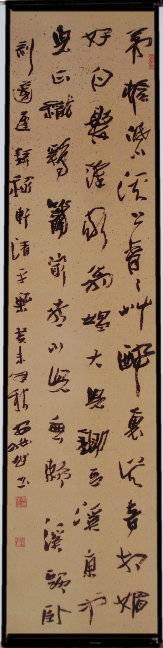 茅檐低小溪上青々艸醉裏吳音相媚
好白髮誰家翁媼大兒鋤豆溪東中
兒正織鷄籠最喜小兒無賴溪頭臥
剝蓮蓬稼軒清平樂癸未秋書